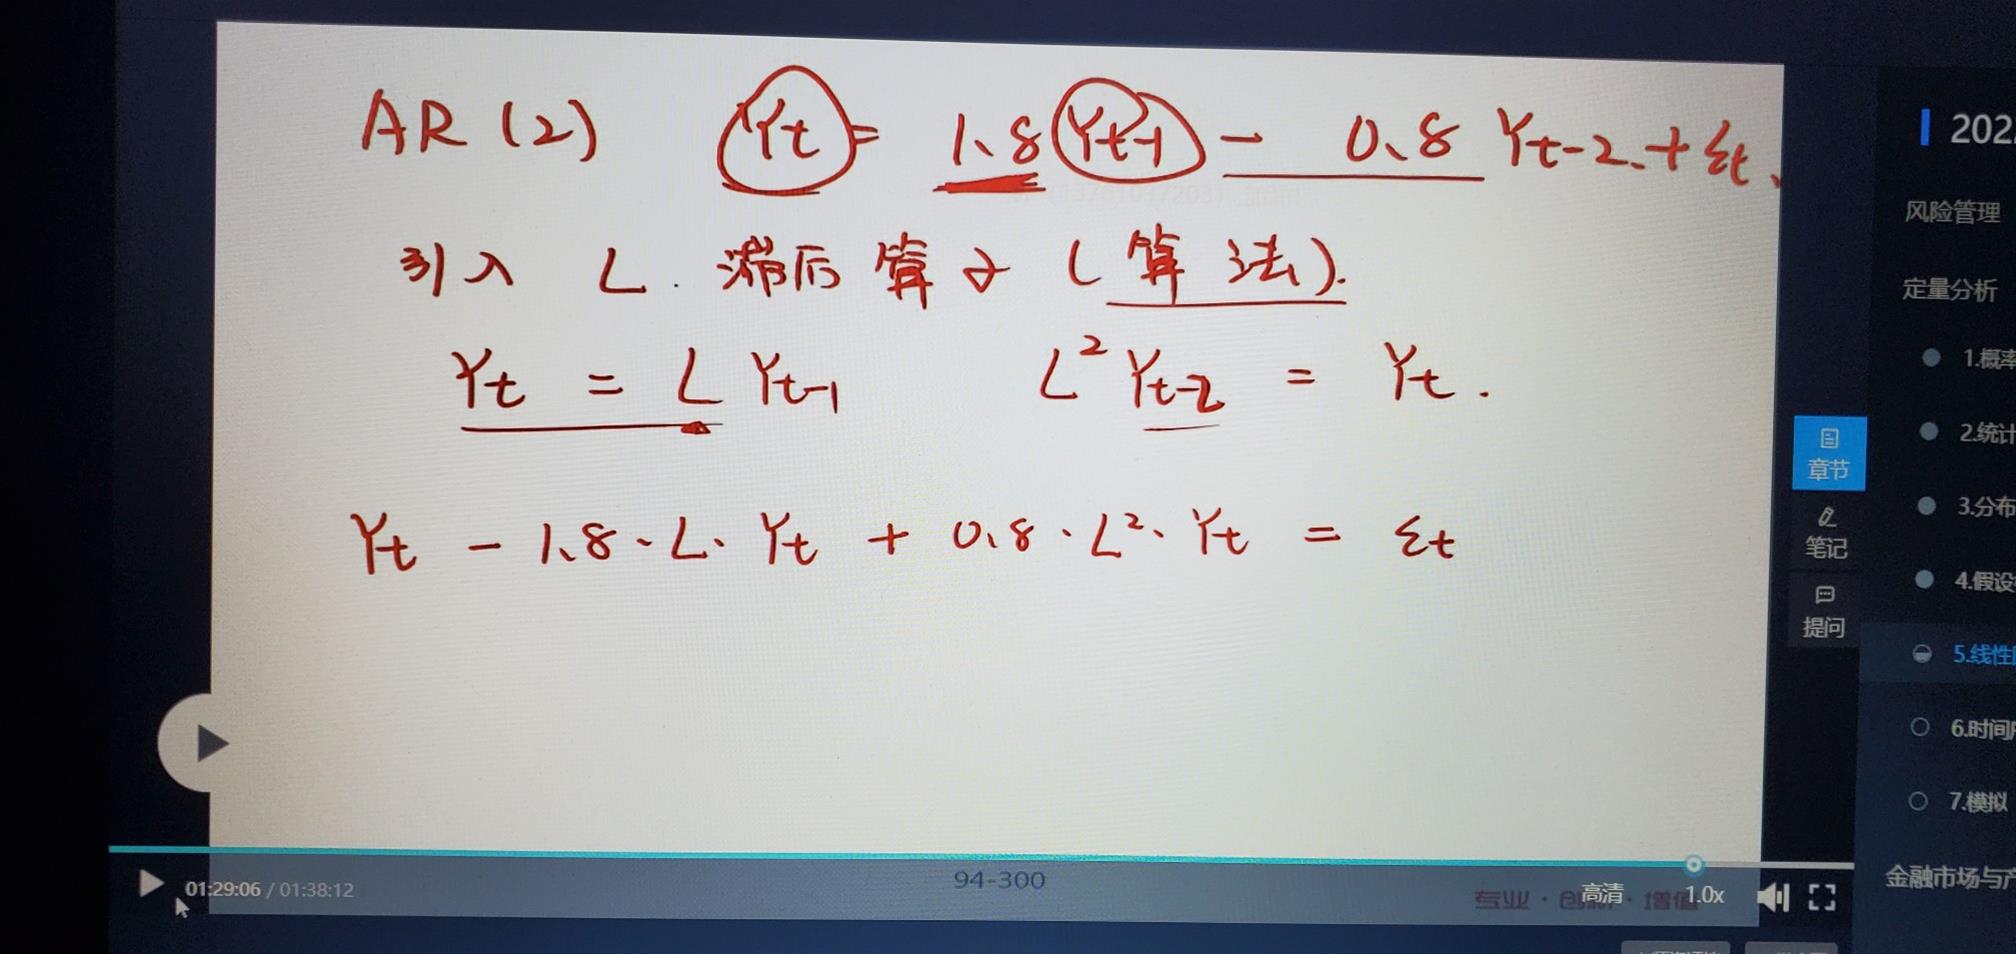 AR (2) Yt = 1.8 Yt-1 - 0.8 Yt-2 + εt.
引入 L. 滞后算子 (算法).
Yt = L Yt-1 L² Yt-2 = Yt.
Yt - 1.8 · L · Yt + 0.8 · L² · Yt = εt
94-300
专业·创新·增值
01:29:06 / 01:38:12
高清
1.0x
章节
笔记
提问
202
风险管理
定量分析
1.概率
2.统计
3.分布
4.假设
5.线性
6.时间
7.模拟
金融市场与产